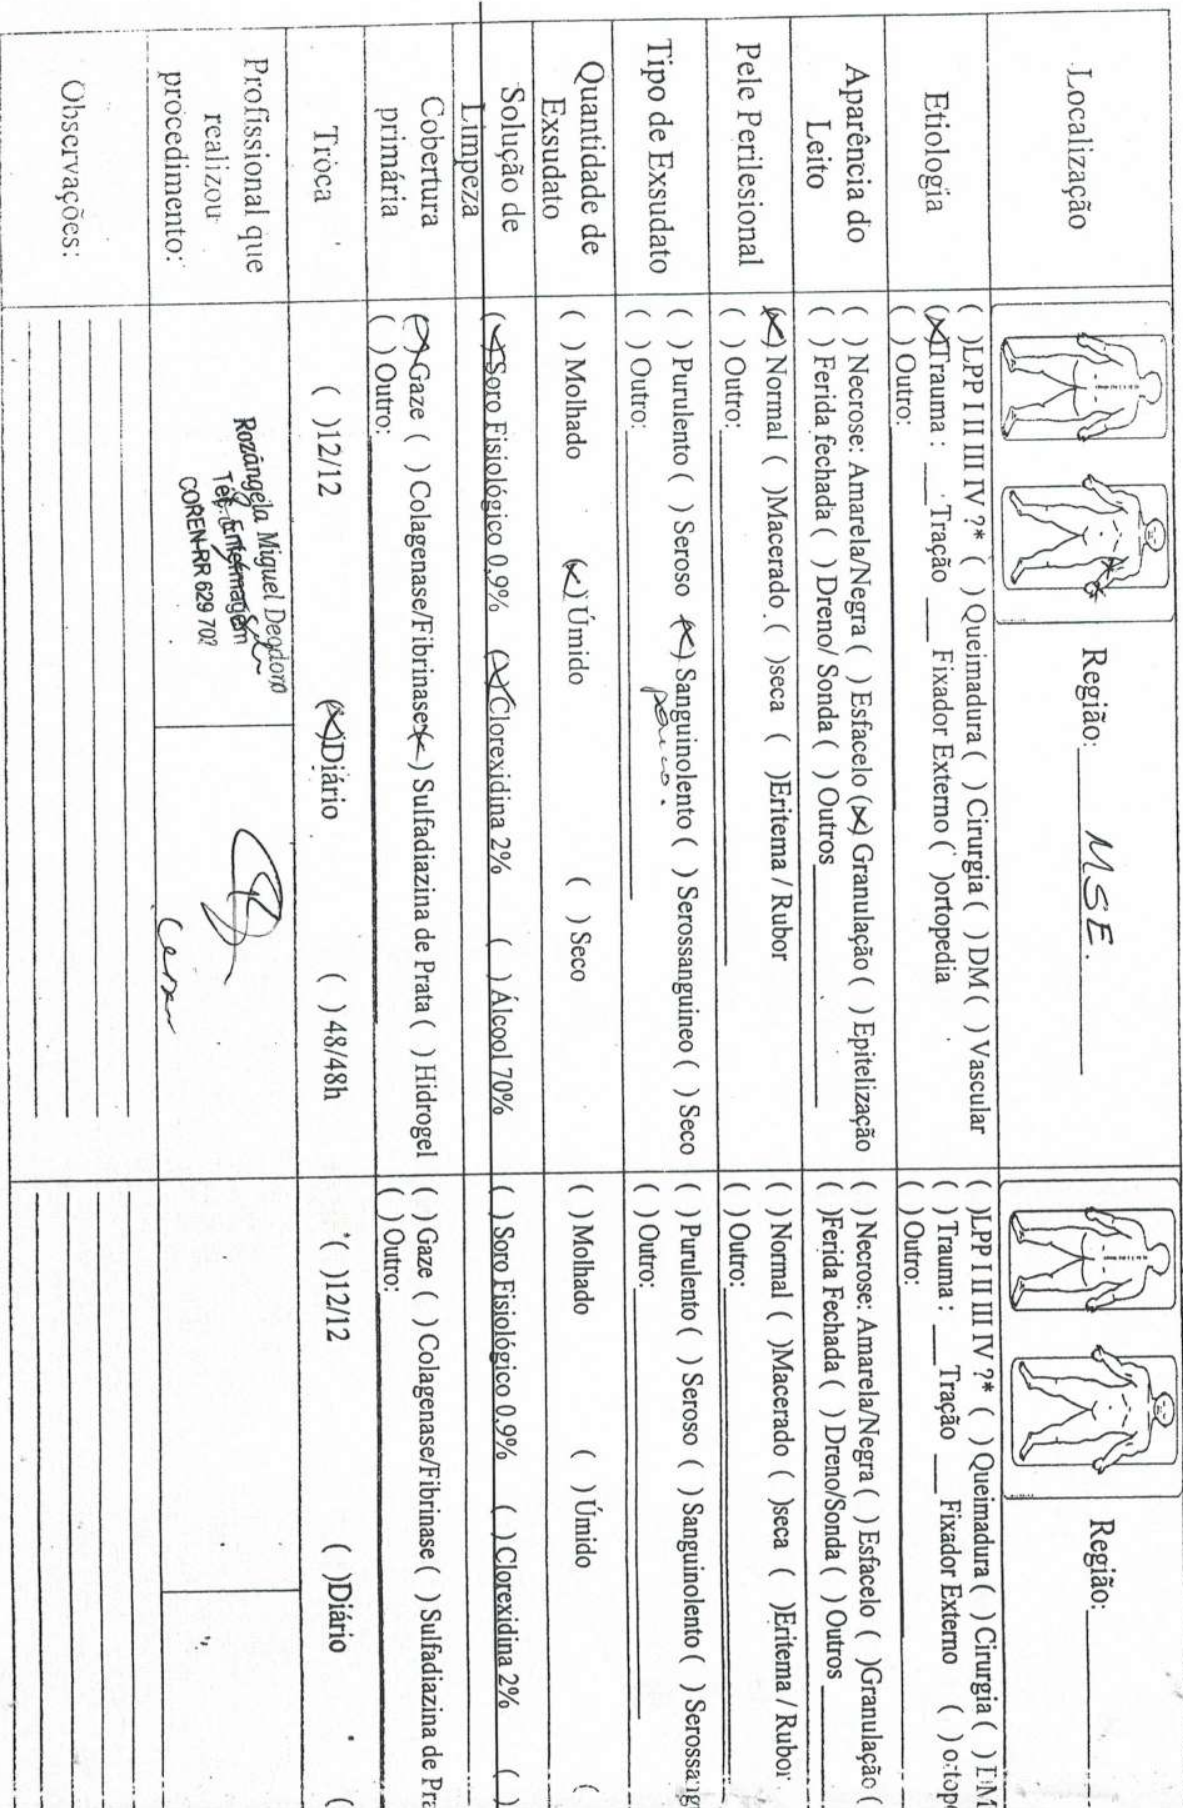 Localização
Região: MSE.
Região:
Etiologia
( )LPP I II III IV ?* ( ) Queimadura ( ) Cirurgia ( ) DM ( ) Vascular
(X)Trauma : ___ Tração ___ Fixador Externo ( )ortopedia
( ) Outro:
( )LPP I II III IV ?* ( ) Queimadura ( ) Cirurgia ( ) DM
( ) Trauma : ___ Tração ___ Fixador Externo ( ) ortope
( ) Outro:
Aparência do
Leito
( ) Necrose: Amarela/Negra ( ) Esfacelo (X) Granulação ( ) Epitelização
( ) Ferida fechada ( ) Dreno/ Sonda ( ) Outros
( ) Necrose: Amarela/Negra ( ) Esfacelo ( )Granulação (
( )Ferida Fechada ( ) Dreno/Sonda ( ) Outros
Pele Perilesional
(X) Normal ( )Macerado ( )seca ( )Eritema / Rubor
( ) Outro:
( ) Normal ( )Macerado ( )seca ( )Eritema / Rubor
( ) Outro:
Tipo de Exsudato
( ) Purulento ( ) Seroso (X) Sanguinolento ( ) Serossanguineo ( ) Seco
( ) Outro: pouco.
( ) Purulento ( ) Seroso ( ) Sanguinolento ( ) Serossang
( ) Outro:
Quantidade de
Exsudato
( ) Molhado (X) Úmido ( ) Seco
( ) Molhado ( ) Úmido (
Solução de
Limpeza
(X)Soro Fisiológico 0,9% (X)Clorexidina 2% ( ) Álcool 70%
( ) Soro Fisiológico 0.9% ( )Clorexidina 2% ( )
Cobertura
primária
(X)Gaze ( ) Colagenase/Fibrinase(X) Sulfadiazina de Prata ( ) Hidrogel
( ) Outro:
( ) Gaze ( ) Colagenase/Fibrinase ( ) Sulfadiazina de Pra
( ) Outro:
Troca
( )12/12 (X)Diário ( ) 48/48h
( )12/12 ( )Diário (
Profissional que
realizou
procedimento:
Rozângela Miguel Deodoro
Téc. Enfermagem
COREN-RR 629 702
Observações: